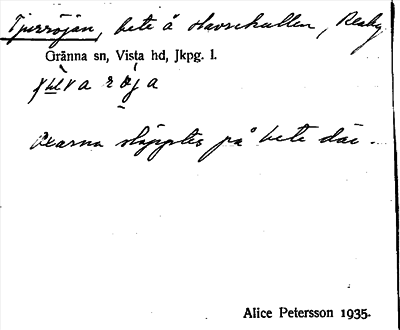 Tjurröjan, bete å Havrekullen, Reaby
Gränna sn, Vista hd, Jkpg. l.
Oxarna släpptes på bete där.
Alice Petersson 1935.